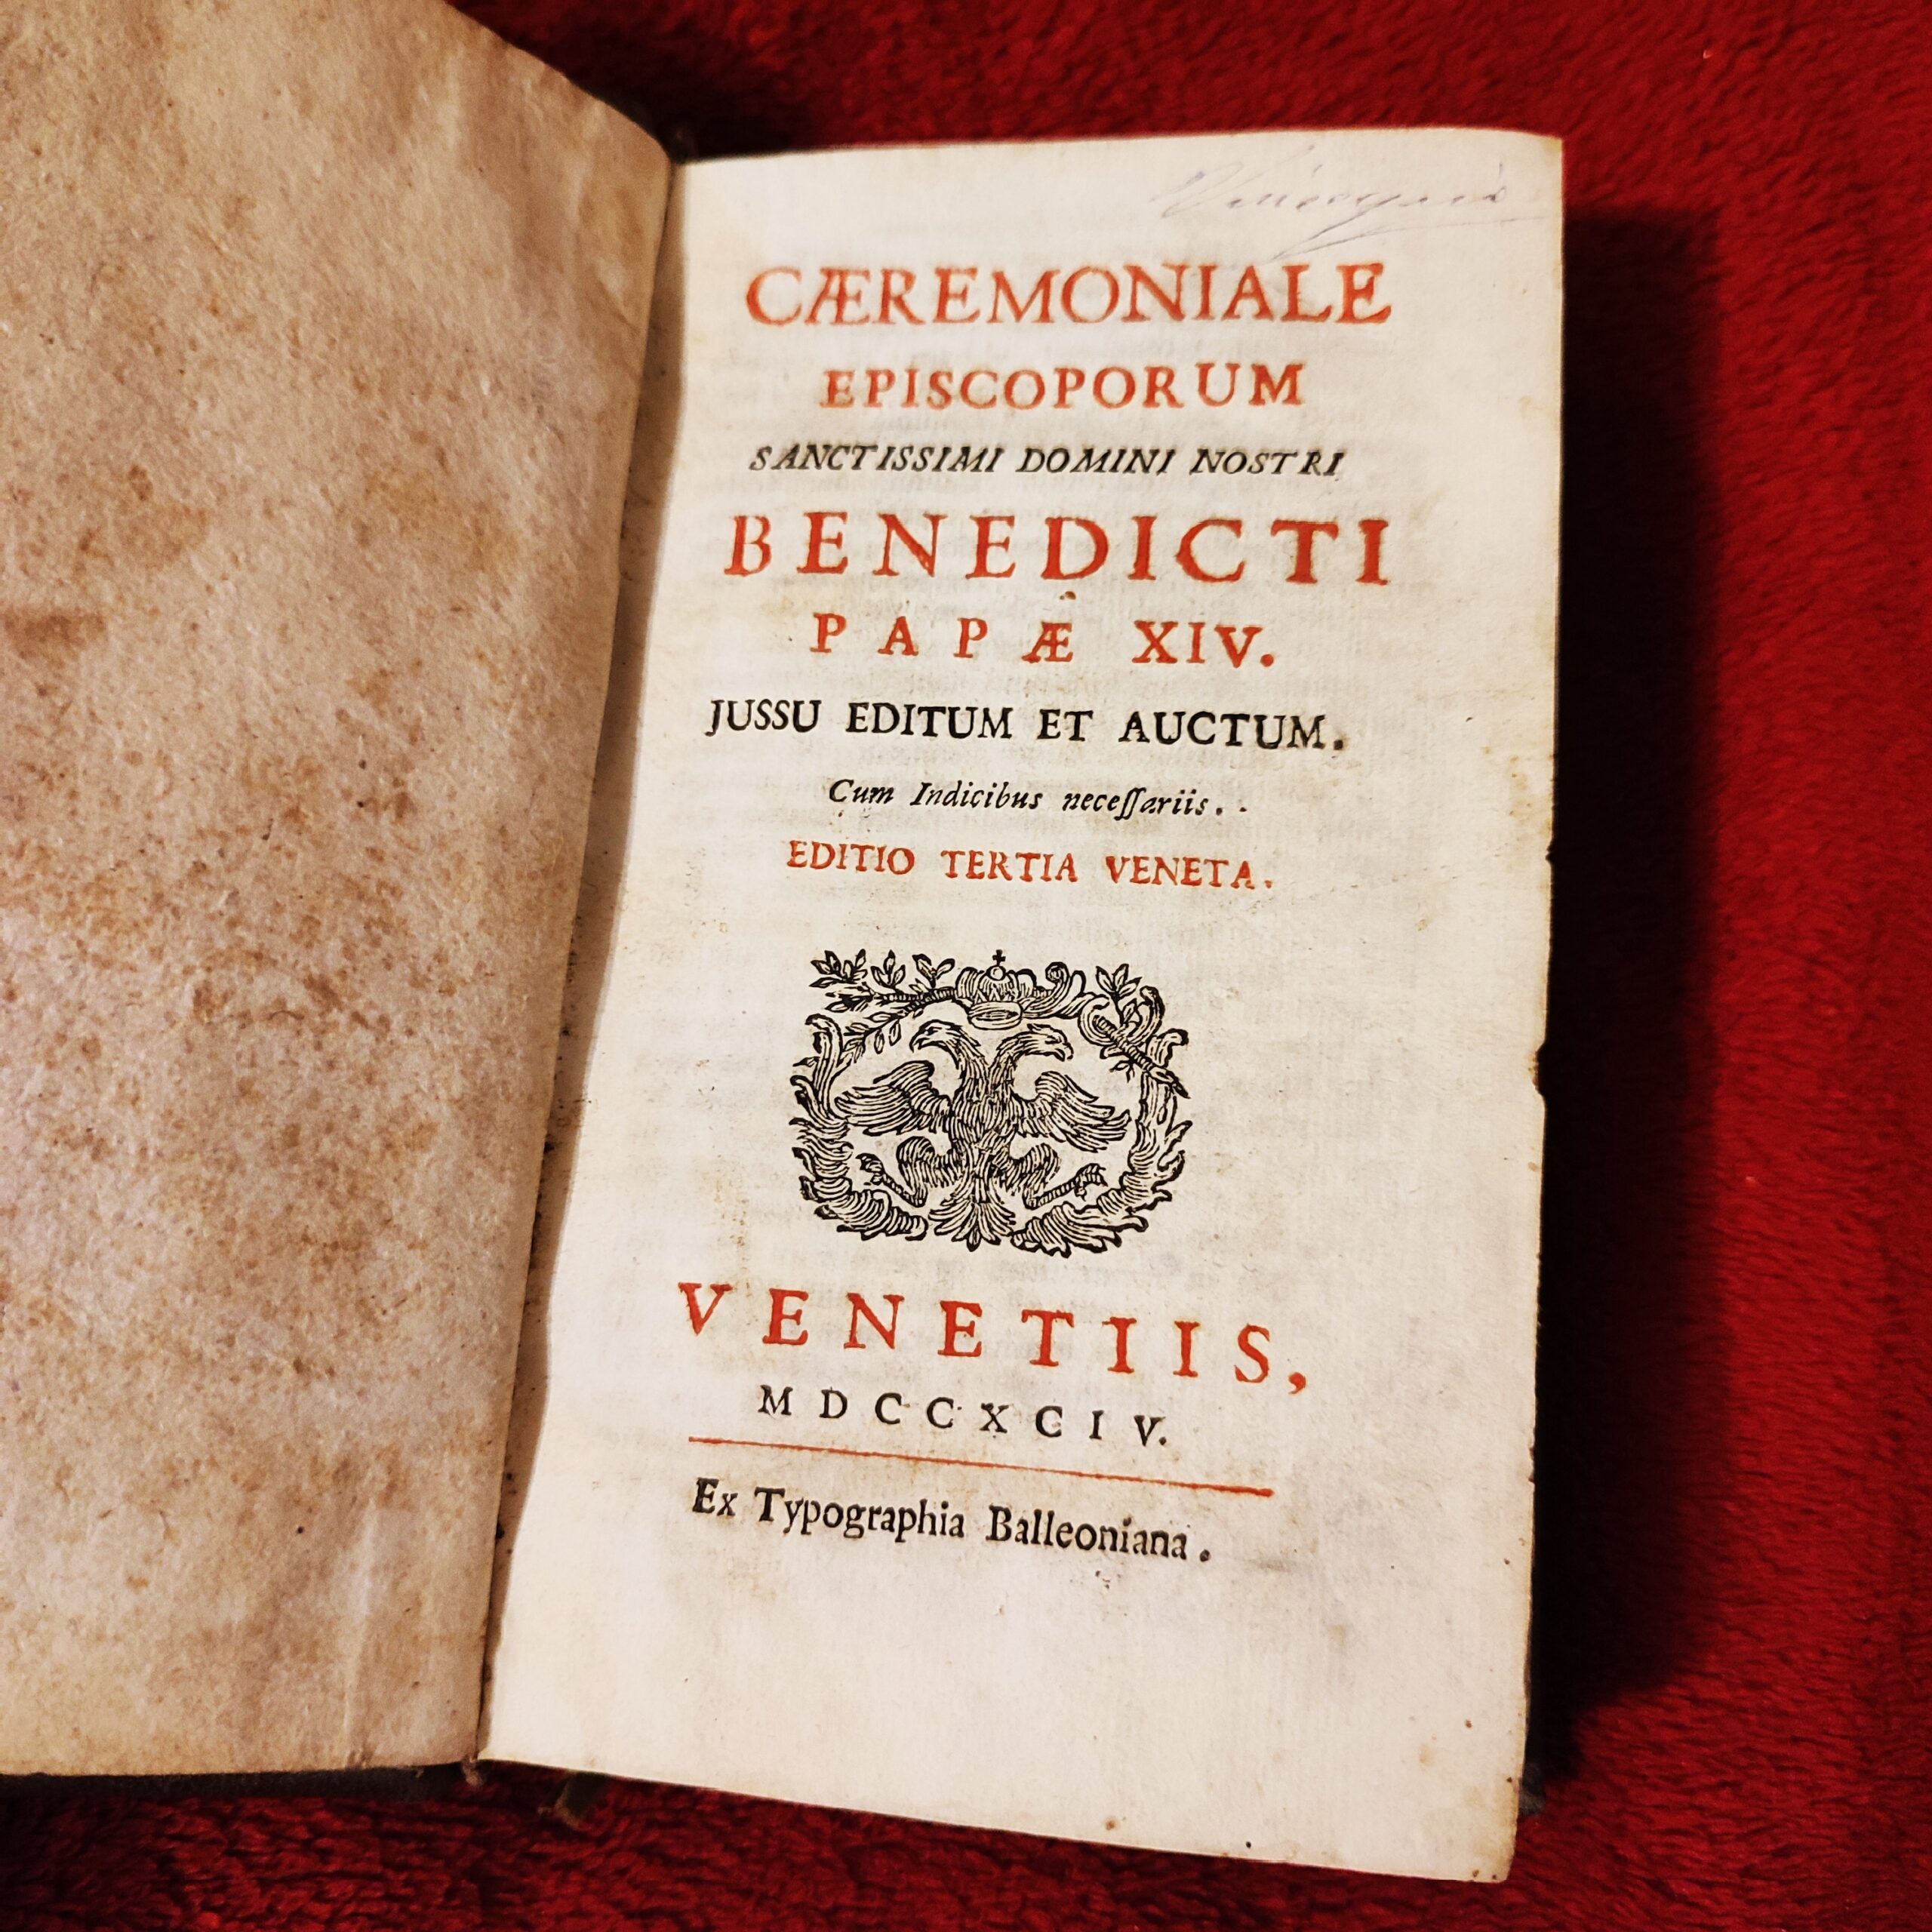 CÆREMONIALE
EPISCOPORUM
SANCTISSIMI DOMINI NOSTRI
BENEDICTI
PAPÆ XIV.
JUSSU EDITUM ET AUCTUM.
Cum Indicibus neceſſariis. .
EDITIO TERTIA VENETA.
VENETIIS,
MDCCXCIV.
Ex Typographia Balleoniana.